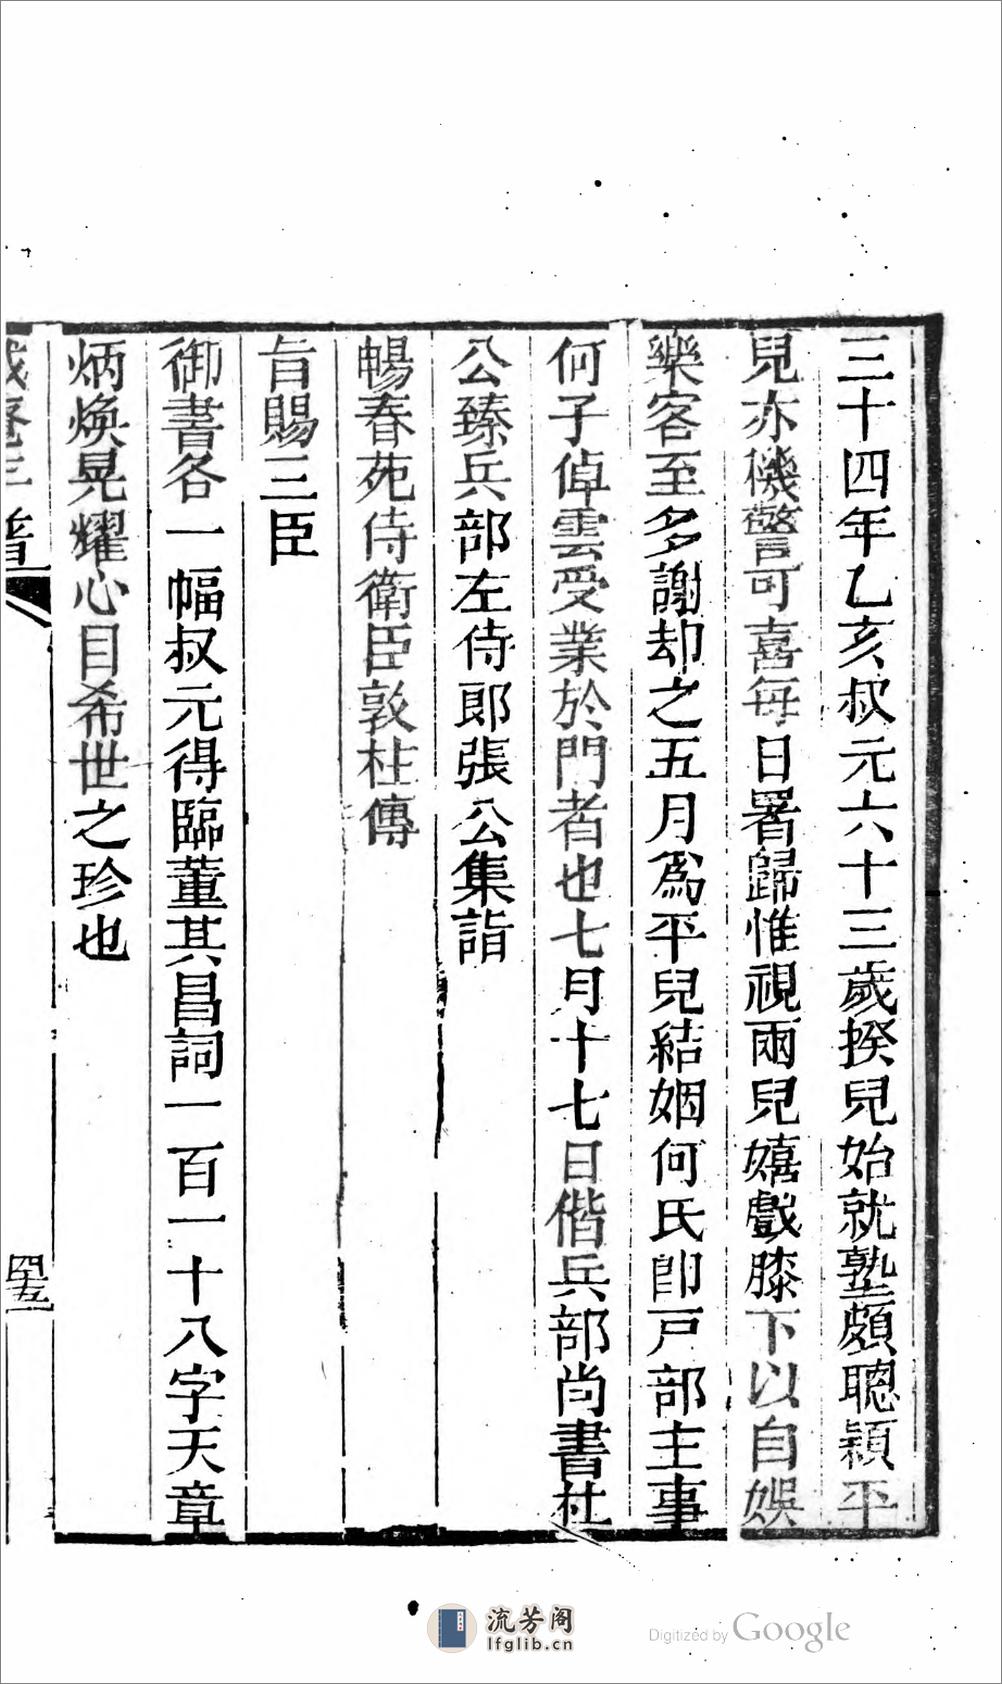 三十四年乙亥叔元六十三歲揆兒始就塾頗聰穎平
兒亦機警可喜每日署歸惟視兩兒嬉戲膝下以自娛
樂客至多謝却之五月爲平兒結姻何氏卽戸部主事
何子倬雲受業於門者也七月十七日偕兵部尚書杜
公臻兵部左侍郎張公集詣
暢春苑侍衛臣敦柱傳
旨賜三臣
御書各一幅叔元得臨董其昌詞一百一十八字天章
炳煥晃耀心目希世之珍也
四五
流芳阁
lfglib.cn
Digitized by Google